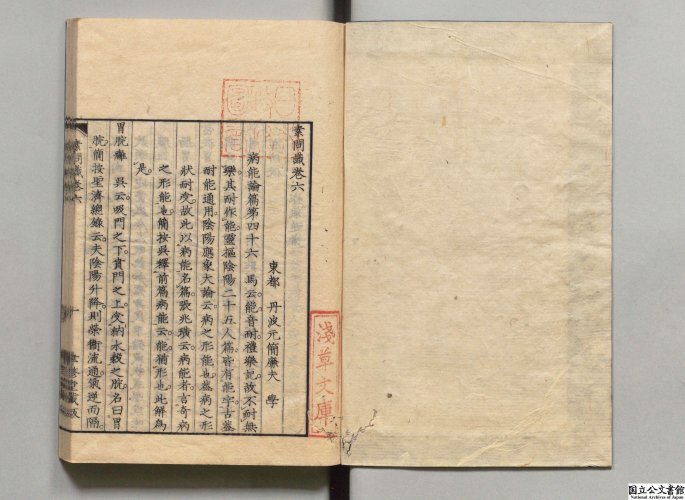 素問識卷六
東都 丹波元簡廉夫 學
病能論篇第四十六 馬云。能音耐。禮樂記。故人不耐無
樂。其耐作能。靈樞陰陽二十五人篇。皆有能字。古蓋
耐能通用。陰陽應象大論云。病之形能也。蓋病之形
狀。耐皮故此以病能名篇。張兆璜云。病能者。言奇病
之形能也。簡按吳釋前篇病能云。能猶形也。此解爲
是。
胃脘癰 吳云。吸門之下。賁門之上。受納水穀之脘。名曰胃
脘。簡按聖濟總錄云。夫陰陽升降。則榮衞流通。氣逆而隔。
素問識卷六
一
淺草文庫
国立公文書館
National Archives of Japan